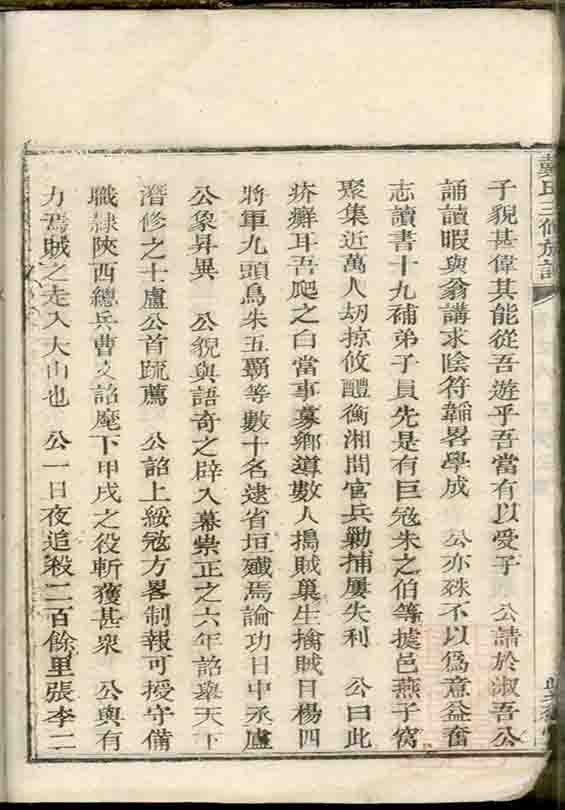 戴氏三修族譜
子貌甚偉其能從吾遊乎吾當有以受子　公請於淑吾公
誦讀暇與翁講求陰符韜畧學成　公亦殊不以爲意益奮
志讀書十九補弟子員先是有巨冦朱之伯等據邑燕子窩
聚集近萬人劫掠攸醴衡湘間官兵勦捕屢失利　公曰此
疥癬耳吾爬之白當事募鄉導數人搗賊巢生擒賊目楊四
將軍九頭鳥朱五覇等數十名逮省垣殲焉論功日中丞盧
公象昇異　公貌與語奇之辟入幕崇正之六年詔舉天下
潛修之士盧公首疏薦　公詔上綏冦方畧制報可授守備
職隷陜西總兵曹文詔麾下甲戌之役斬獲甚衆　公與有
力焉賊之走入大山也　公一日夜追殺二百餘里張李二